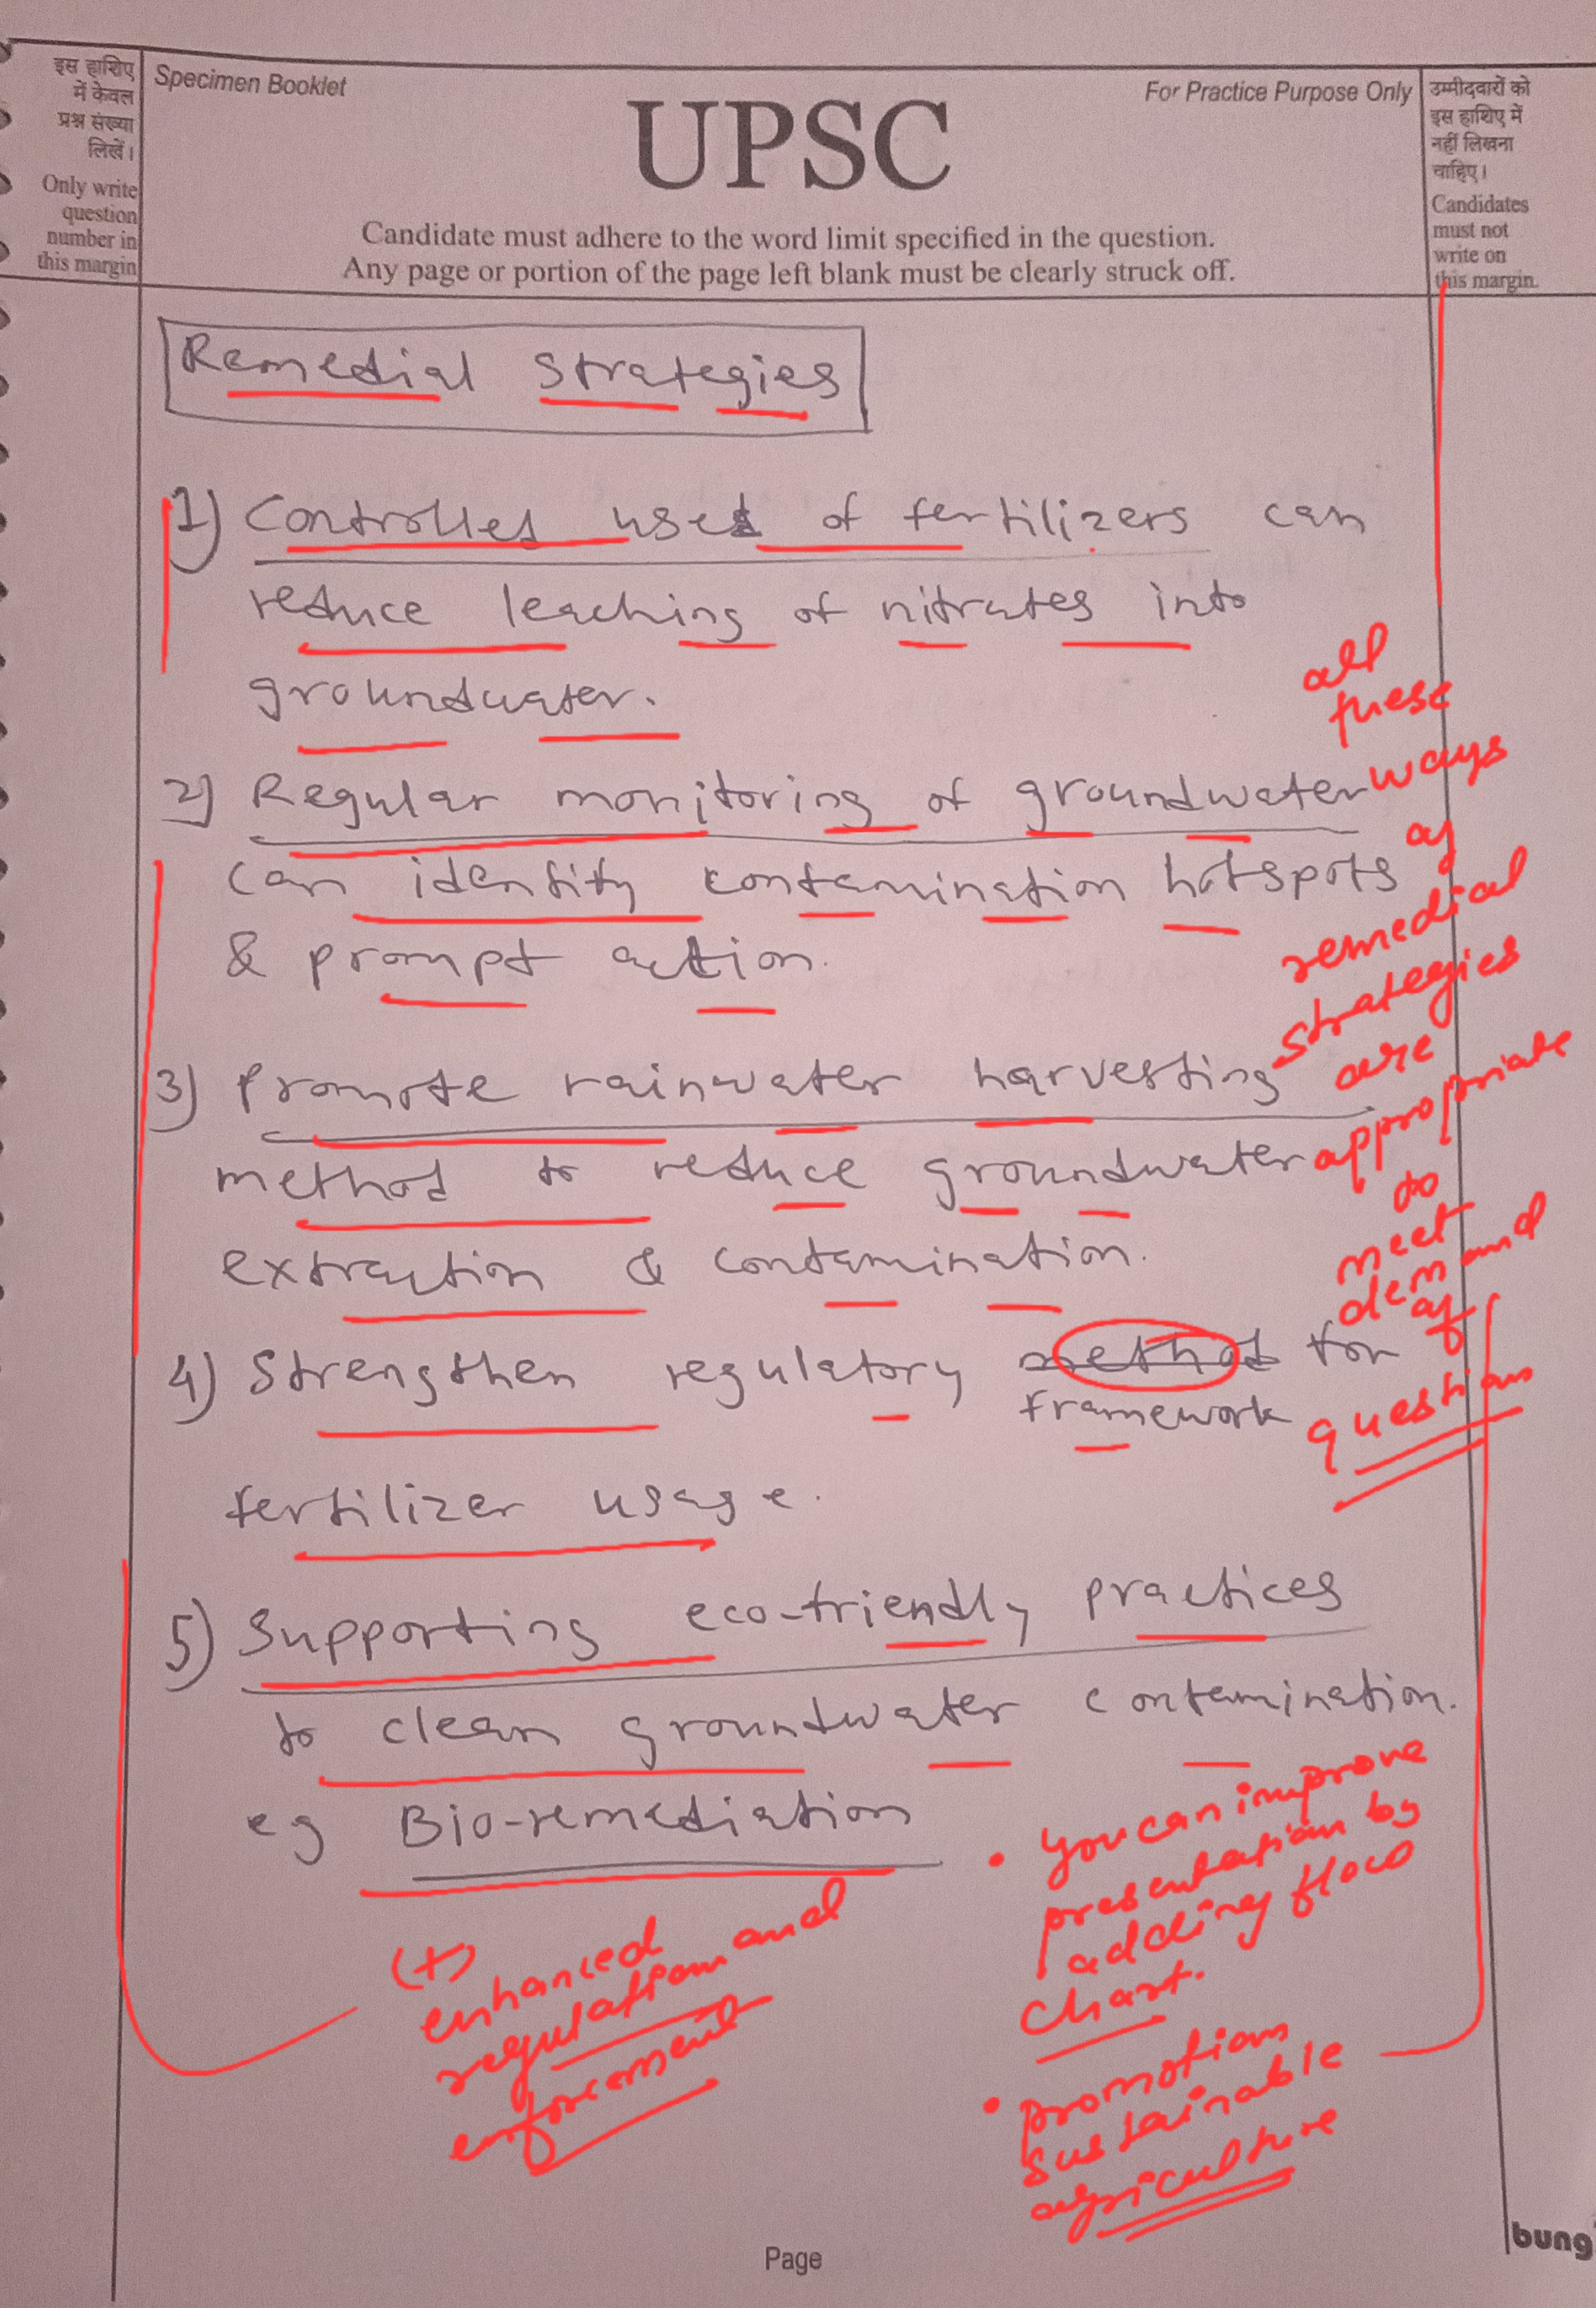 इस हाशिए
में केवल
प्रश्न संख्या
लिखें।
Only write
question
number in
this margin
Specimen Booklet
For Practice Purpose Only
UPSC
Candidate must adhere to the word limit specified in the question.
Any page or portion of the page left blank must be clearly struck off.
उम्मीदवारों को
इस हाशिए में
नहीं लिखना
चाहिए।
Candidates
must not
write on
this margin.
Remedial Strategies
1) Controlled use of fertilizers can
reduce leaching of nitrates into
groundwater.
2) Regular monitoring of groundwater
can identify contamination hotspots
& prompt action.
3) Promote rainwater harvesting
method to reduce groundwater
extraction & contamination.
4) Strengthen regulatory method for
framework
fertilizer usage.
5) Supporting eco-friendly practices
to clean groundwater contamination.
eg Bio-remediation
all
these
ways
of
remedial
strategies
are
appropriate
to
meet
demand
of
question
(+)
enhanced
regulation and
enforcement
• You can improve
presentation by
adding flow
chart.
• promotion
sustainable
agriculture
Page
bung